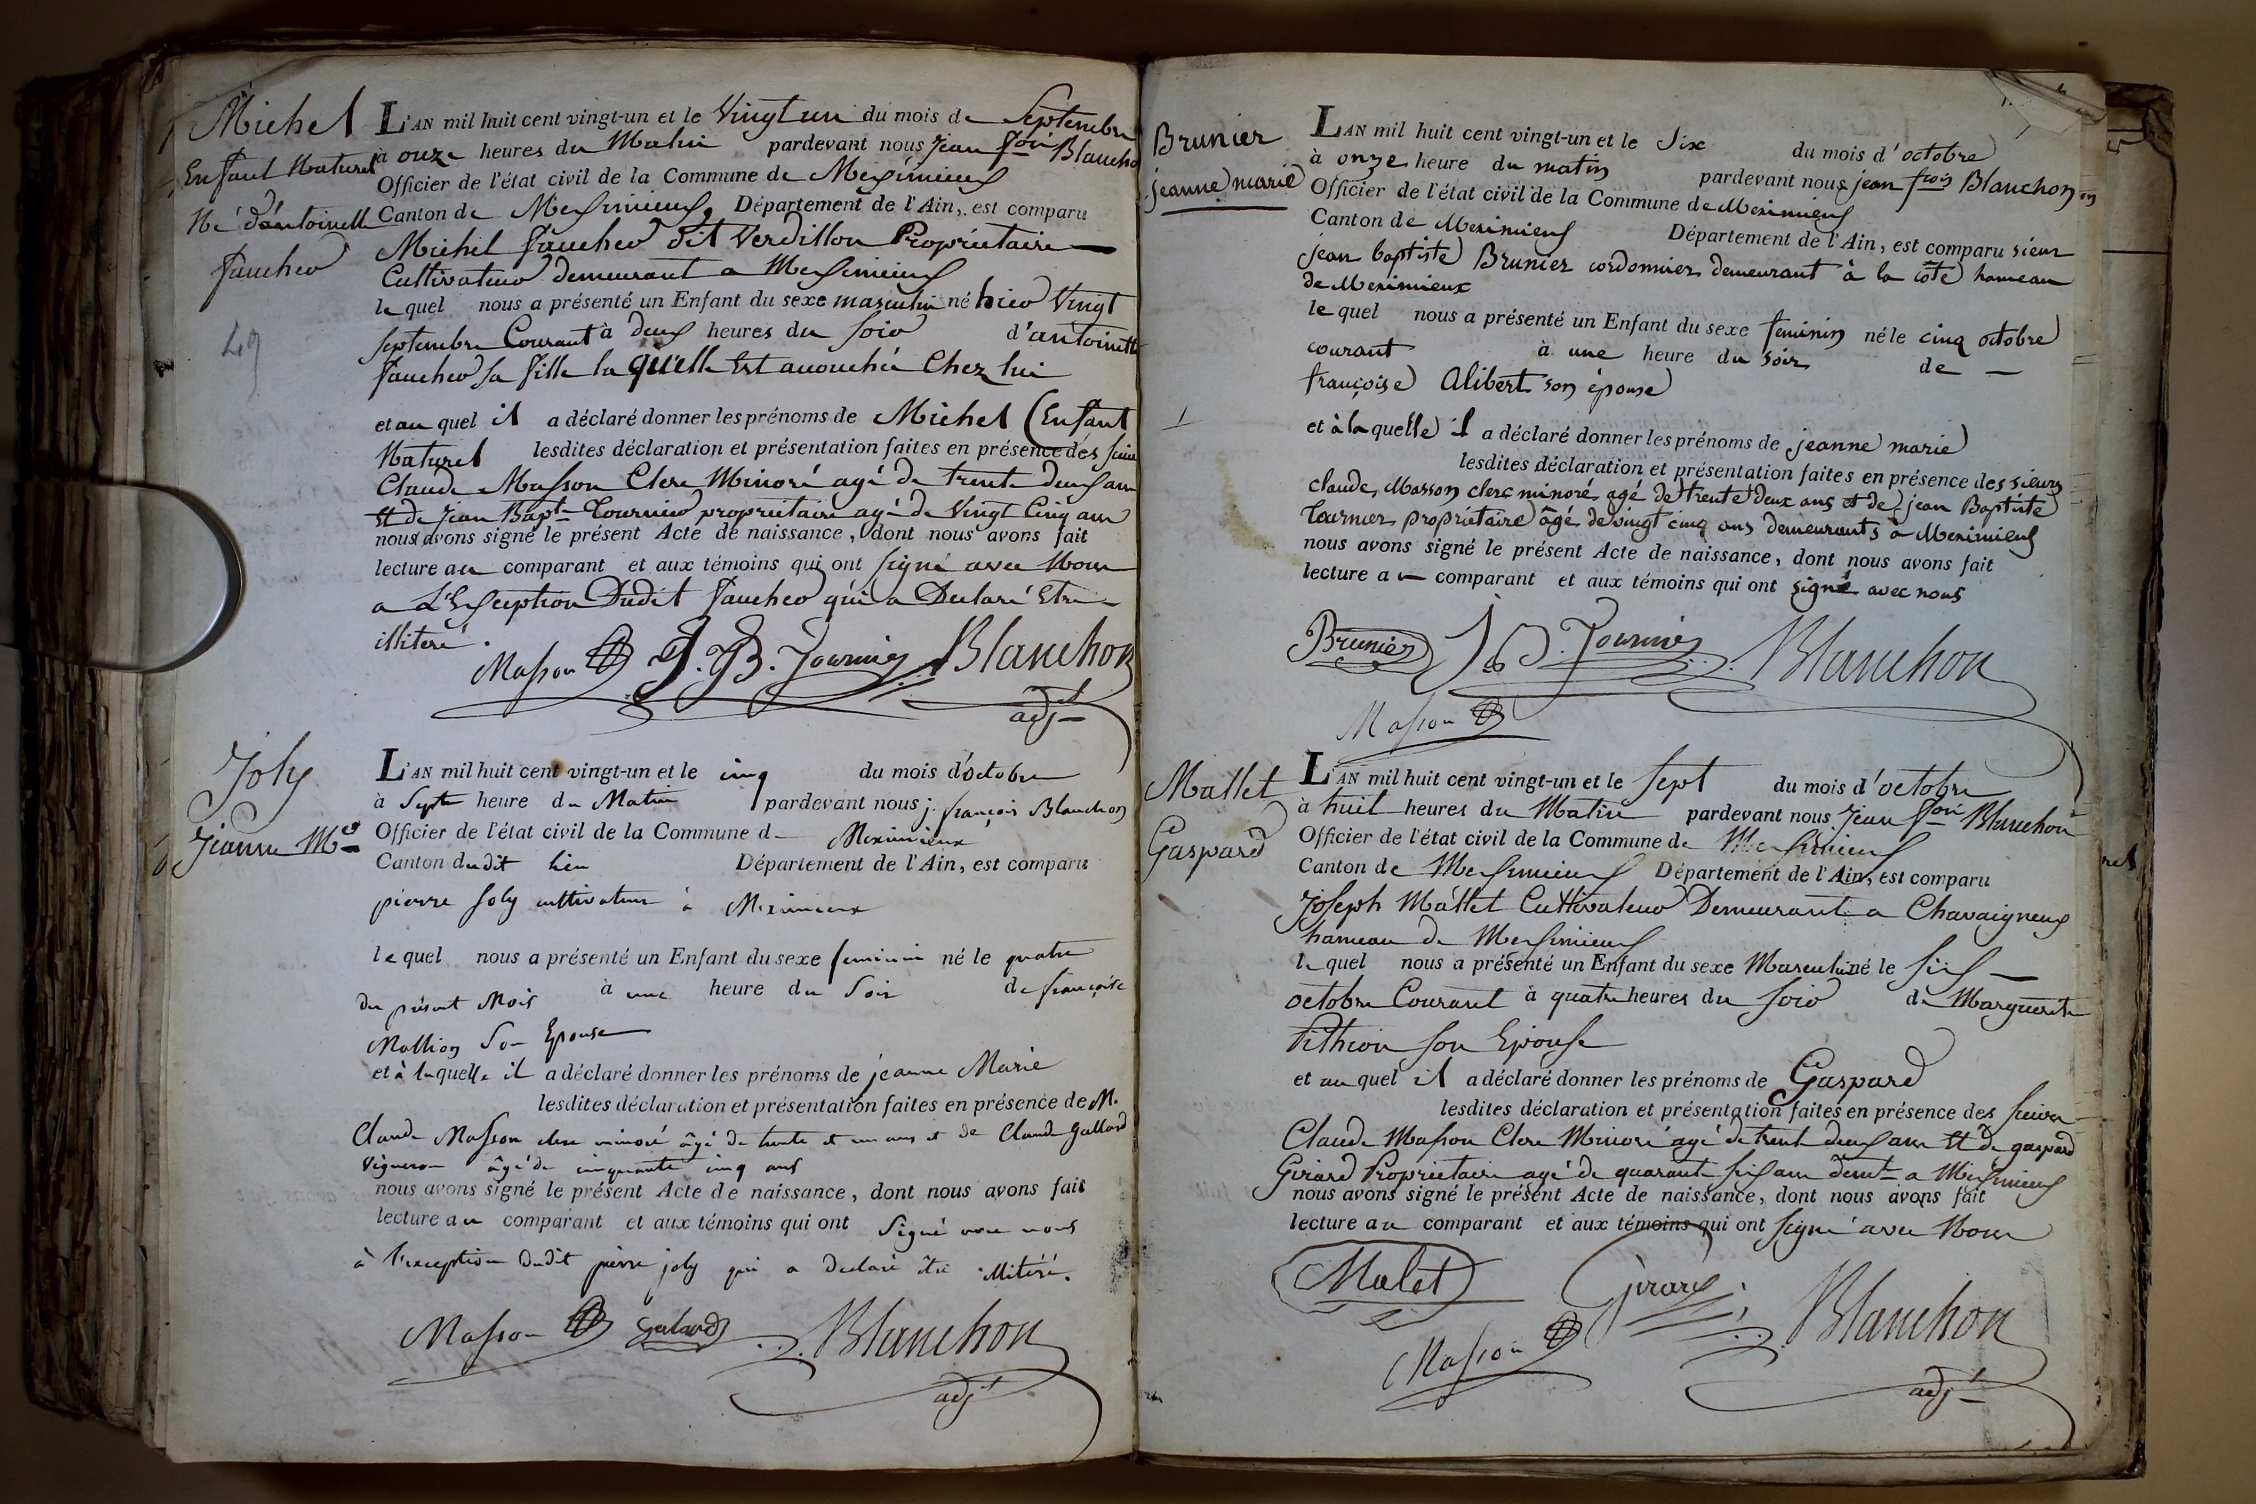 Michel
Enfant Naturel
Né d'antoinette
faucheo
49
L'AN mil huit cent vingt-un et le Vingt un du mois de Septembre
à onze heures du Matin pardevant nous Jean fois Blancho
Officier de l'état civil de la Commune de Meximieux
Canton de Meximieux, Département de l'Ain, est comparu
Michel faucheo dit Verdillon Propriétaire
Cultivateuo demeurant a Meximieux
le quel nous a présenté un Enfant du sexe masculin né hieo Vingt
Septembre Courant à deux heures du soio d'antoinette
faucheo sa fille la quelle Est accouchée Chez lui
et au quel il a déclaré donner les prénoms de Michel (Enfant
Naturel lesdites déclaration et présentation faites en présence des
Claude Masson Clerc Minoré agé de trente deux ans
Et de Jean Bapte Tournieo propriétaire agé de Vingt Cinq ans
nous avons signé le présent Acte de naissance, dont nous avons fait
lecture au comparant et aux témoins qui ont signé avec Nous
a L'Exception Dudit faucheo qui a Declaré Etre
illiteré.
Masson J. B. Tournier Blanchon
adjt
Joly
Jeanne Mie
L'AN mil huit cent vingt-un et le cinq du mois d'octobre
à Sept heure du Matin pardevant nous j. françois Blanchon
Officier de l'état civil de la Commune de Meximieux
Canton dudit lieu Département de l'Ain, est comparu
pierre Joly cultivateur à Meximieux
le quel nous a présenté un Enfant du sexe feminin né le quatre
du présent Mois à une heure du Soir de françoise
Mallion Son Epouse
et à laquelle il a déclaré donner les prénoms de jeanne Marie
lesdites déclaration et présentation faites en présence de M.
Claude Masson clerc minoré âgé de trente et un ans et de Claude Galland
Vigneron âgé de cinquante cinq ans
nous avons signé le présent Acte de naissance, dont nous avons fait
lecture au comparant et aux témoins qui ont Signé avec nous
à l'exception dudit pierre joly qui a declaré être illitéré.
Masson Galand Blanchon
adjt
Brunier
jeanne marie
L'AN mil huit cent vingt-un et le Six du mois d'octobre
à onze heure du matin pardevant nous jean frois Blanchon
Officier de l'état civil de la Commune de Meximieux
Canton de Meximieux Département de l'Ain, est comparu sieur
jean baptiste Brunier cordonnier demeurant à la côte hameau
de Meximieux
le quel nous a présenté un Enfant du sexe feminin né le cinq octobre
courant à une heure du soir de
françoise Alibert son épouse
et à la quelle il a déclaré donner les prénoms de jeanne marie
lesdites déclaration et présentation faites en présence des sieurs
claude Masson clerc minoré agé de trente deux ans et de jean Baptiste
Tournier propriétaire âgé de vingt cinq ans demeurants à Meximieux
nous avons signé le présent Acte de naissance, dont nous avons fait
lecture au comparant et aux témoins qui ont signé avec nous
Brunier J. B. Tournier Blanchon
Masson
Mallet
Gaspard
L'AN mil huit cent vingt-un et le Sept du mois d'octobre
à huit heures du Matin pardevant nous Jean fois Blanchon
Officier de l'état civil de la Commune de Meximieux
Canton de Meximieux Département de l'Ain, est comparu
Joseph Mallet Cultivateuo Demeurant a Chavaigneux
hameau de Meximieux
le quel nous a présenté un Enfant du sexe Masculin né le Six
octobre Courant à quatre heures du soio de Marguerite
Pithion son Epouse
et au quel il a déclaré donner les prénoms de Gaspard
lesdites déclaration et présentation faites en présence des
Claude Masson Clerc Minoré agé de trent deux ans Et de gaspard
Girard Propriétaire agé de quarante six ans demt a Meximieux
nous avons signé le présent Acte de naissance, dont nous avons fait
lecture au comparant et aux témoins qui ont signé avec Nous
Malet Girard Blanchon
Masson adjt